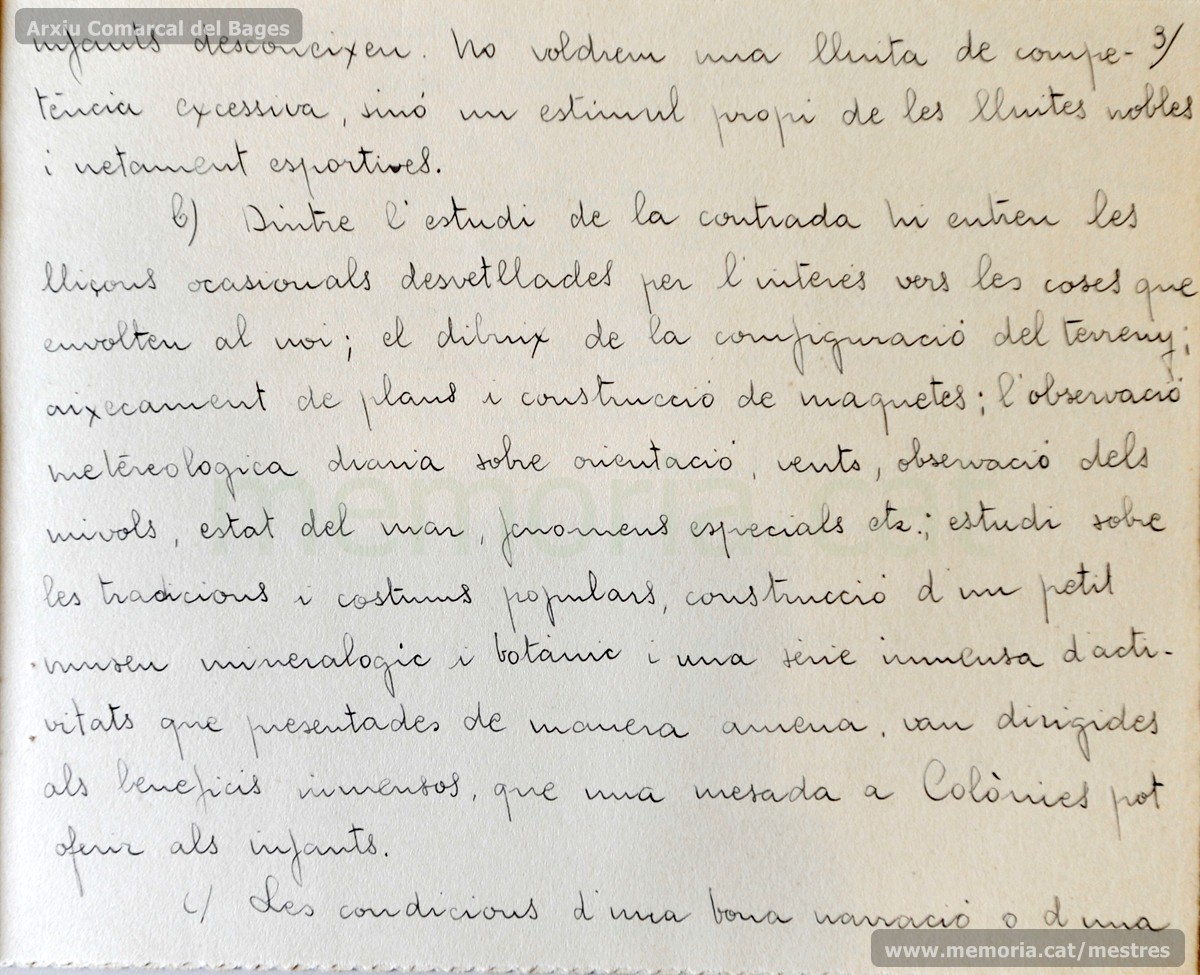 Arxiu Comarcal del Bages
infants desconeixen. No voldrem una lluita de compe- 3/
tència excessiva, sinó un estímul propi de les lluites nobles
i netament esportives.
b) Dintre l'estudi de la contrada hi entren les
lliçons ocasionals desvetllades per l'interés vers les coses que
envolten al noi; el dibuix de la configuració del terreny;
aixecament de plans i construcció de maquetes; l'observació
metéreologica diaria sobre orientació, vents, observació dels
nivols, estat del mar, fenomens especials etz.; estudi sobre
les tradicions i costums populars, construcció d'un petit
museu mineralogic i botànic i una sèrie inmensa d'acti-
vitats que presentades de manera amena, van dirigides
als beneficis inmensos, que una mesada a Colònies pot
oferir als infants.
c) Les condicions d'una bona narració o d'una
memoria.cat
www.memoria.cat/mestres